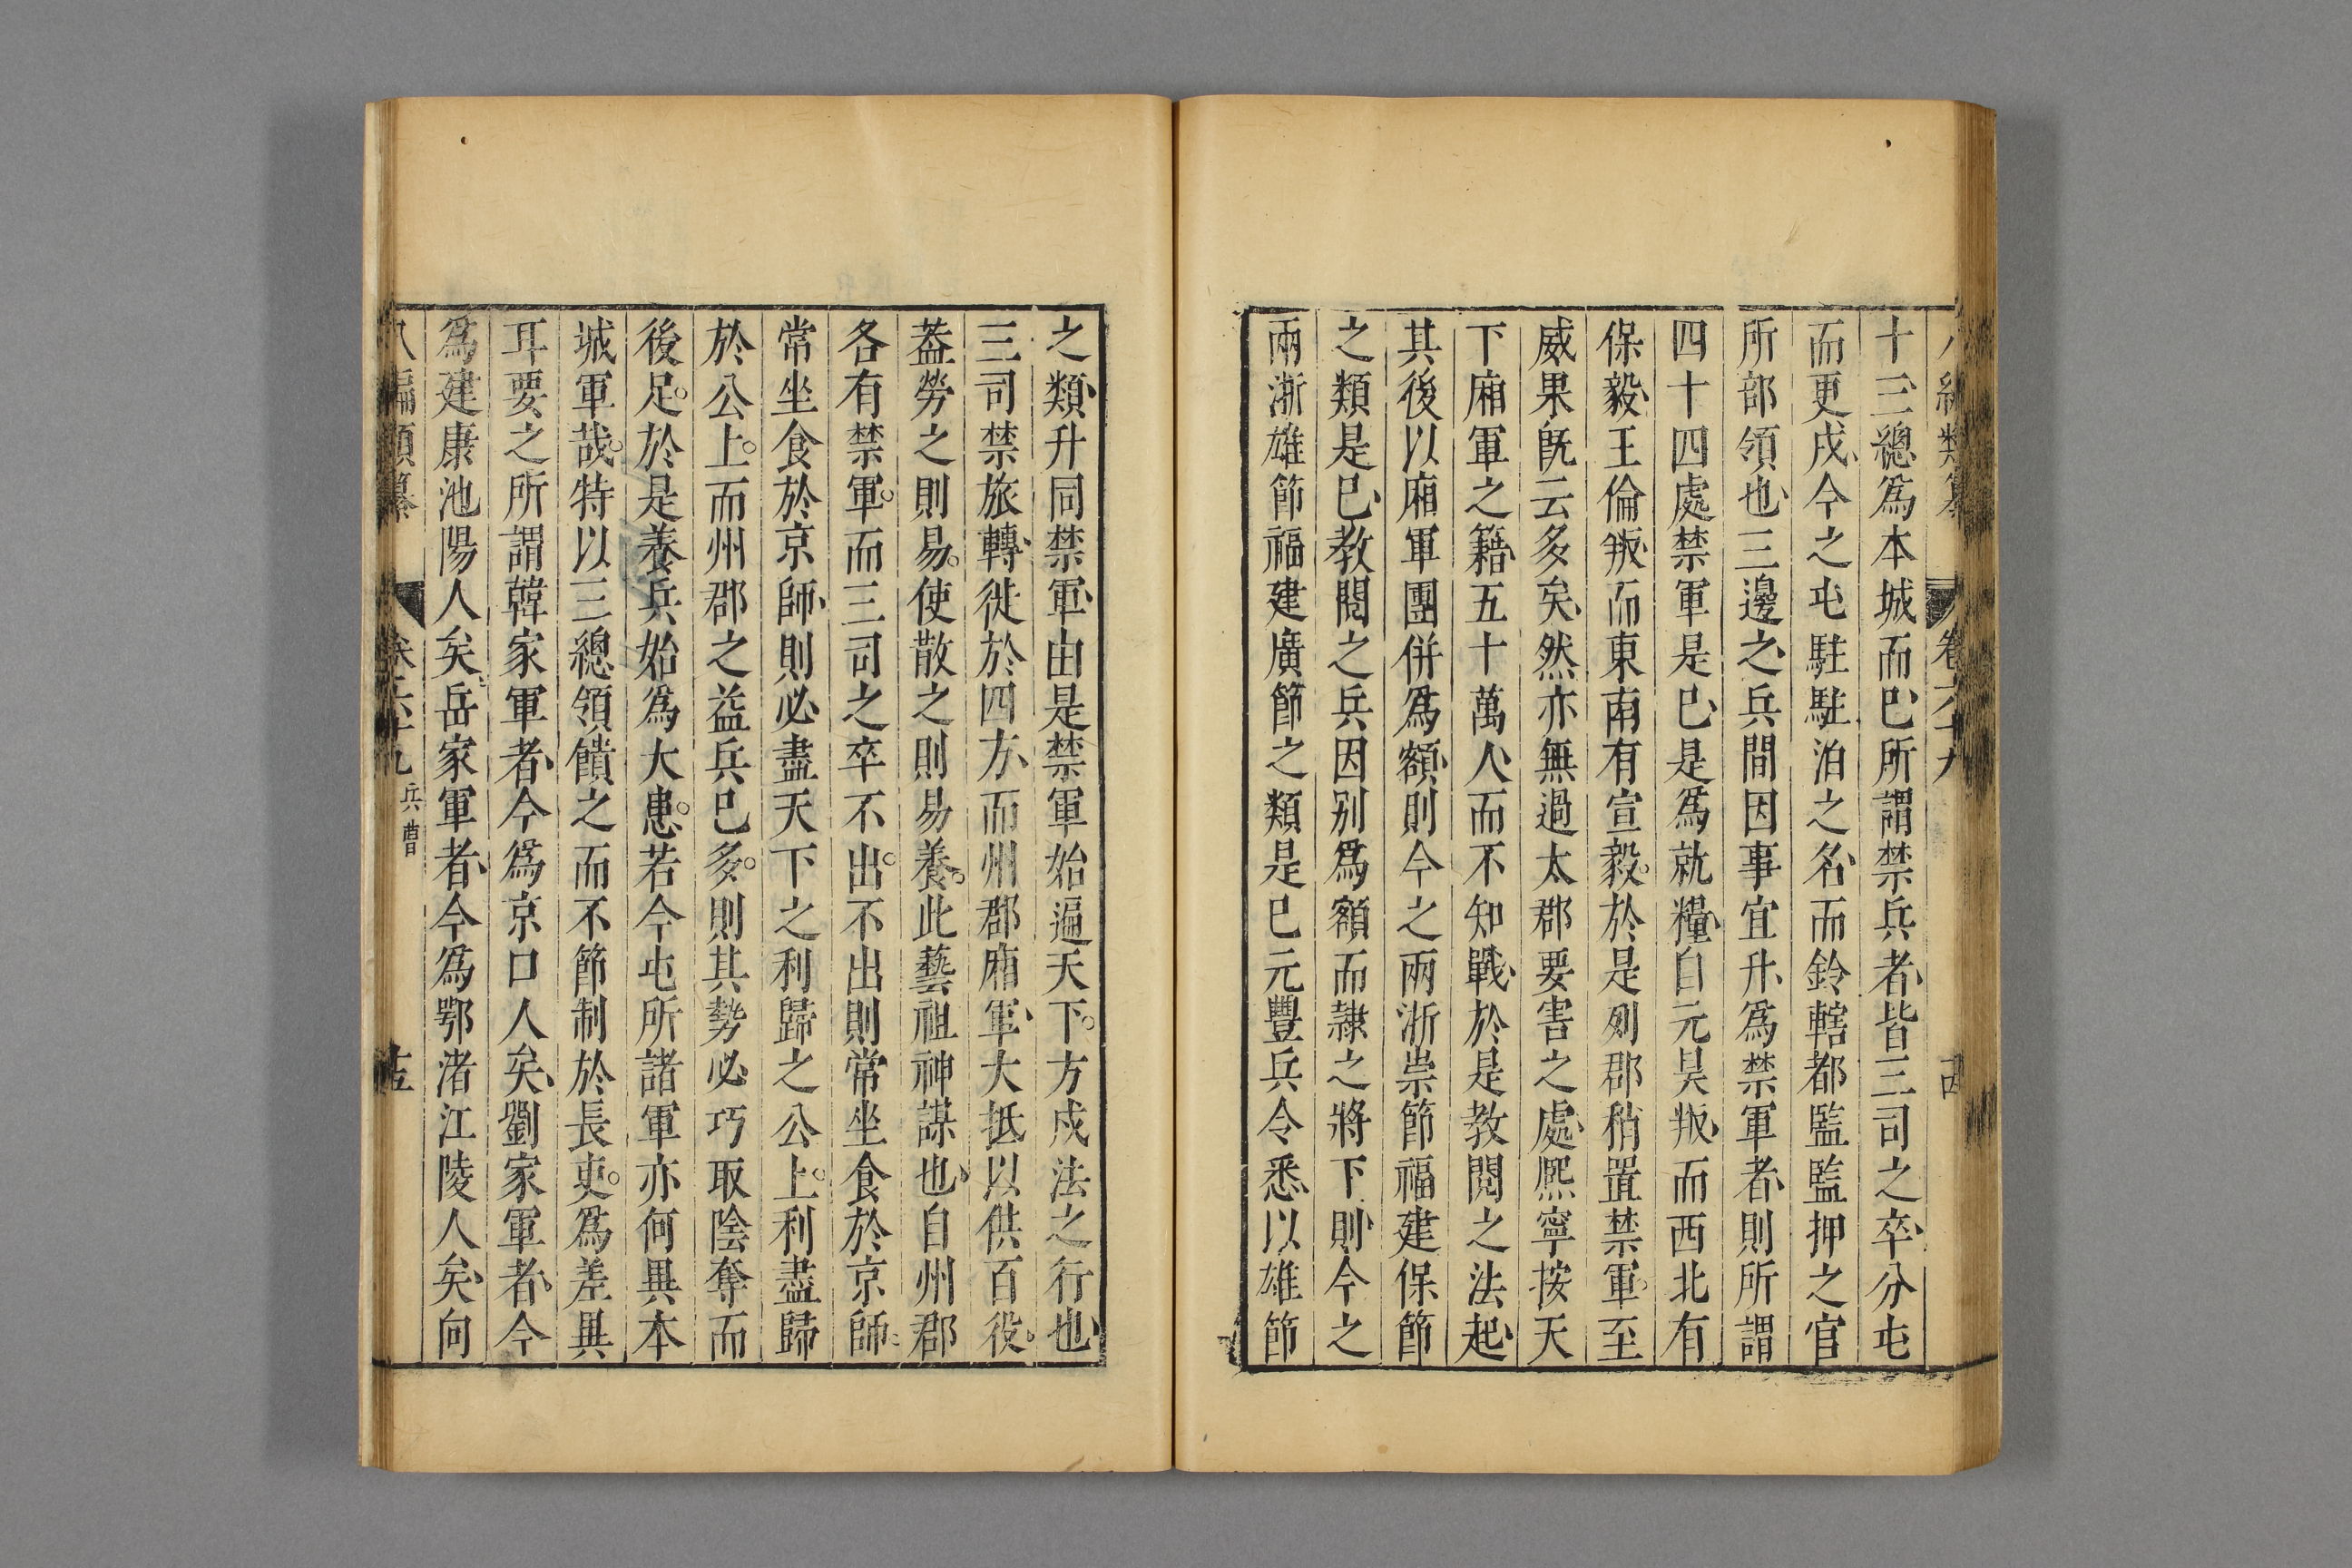 十三總爲本城而已所謂禁兵者皆三司之卒分屯
而更戍今之屯駐駐泊之名而鈐轄都監監押之官
所部領也三邊之兵間因事宜升爲禁軍者則所謂
四十四處禁軍是已是爲就糧自元昊叛而西北有
保毅王倫叛而東南有宣毅於是列郡稍置禁軍至
威果旣云多矣然亦無過太郡要害之處熈寧按天
下廂軍之籍五十萬人而不知戰於是教閱之法起
其後以廂軍團併爲額則今之兩浙崇節福建保節
之類是已教閱之兵因别爲額而隷之將下則今之
兩浙雄節福建廣節之類是已元豐兵令悉以雄節
之類升同禁軍由是禁軍始遍天下方戍法之行也
三司禁旅轉徙於四方而州郡廂軍大抵以供百役
葢勞之則易使散之則易養此藝祖神謀也自州郡
各有禁軍而三司之卒不出不出則常坐食於京師
常坐食於京師則必盡天下之利歸之公上利盡歸
於公上而州郡之益兵已多則其勢必巧取陰奪而
後足於是養兵始爲大患若今屯所諸軍亦何異本
城軍哉特以三總領饋之而不節制於長吏爲差異
耳要之所謂韓家軍者今爲京口人矣劉家軍者今
爲建康池陽人矣岳家軍者今爲鄂渚江陵人矣向
八編類纂 卷六十九 兵曹 十五